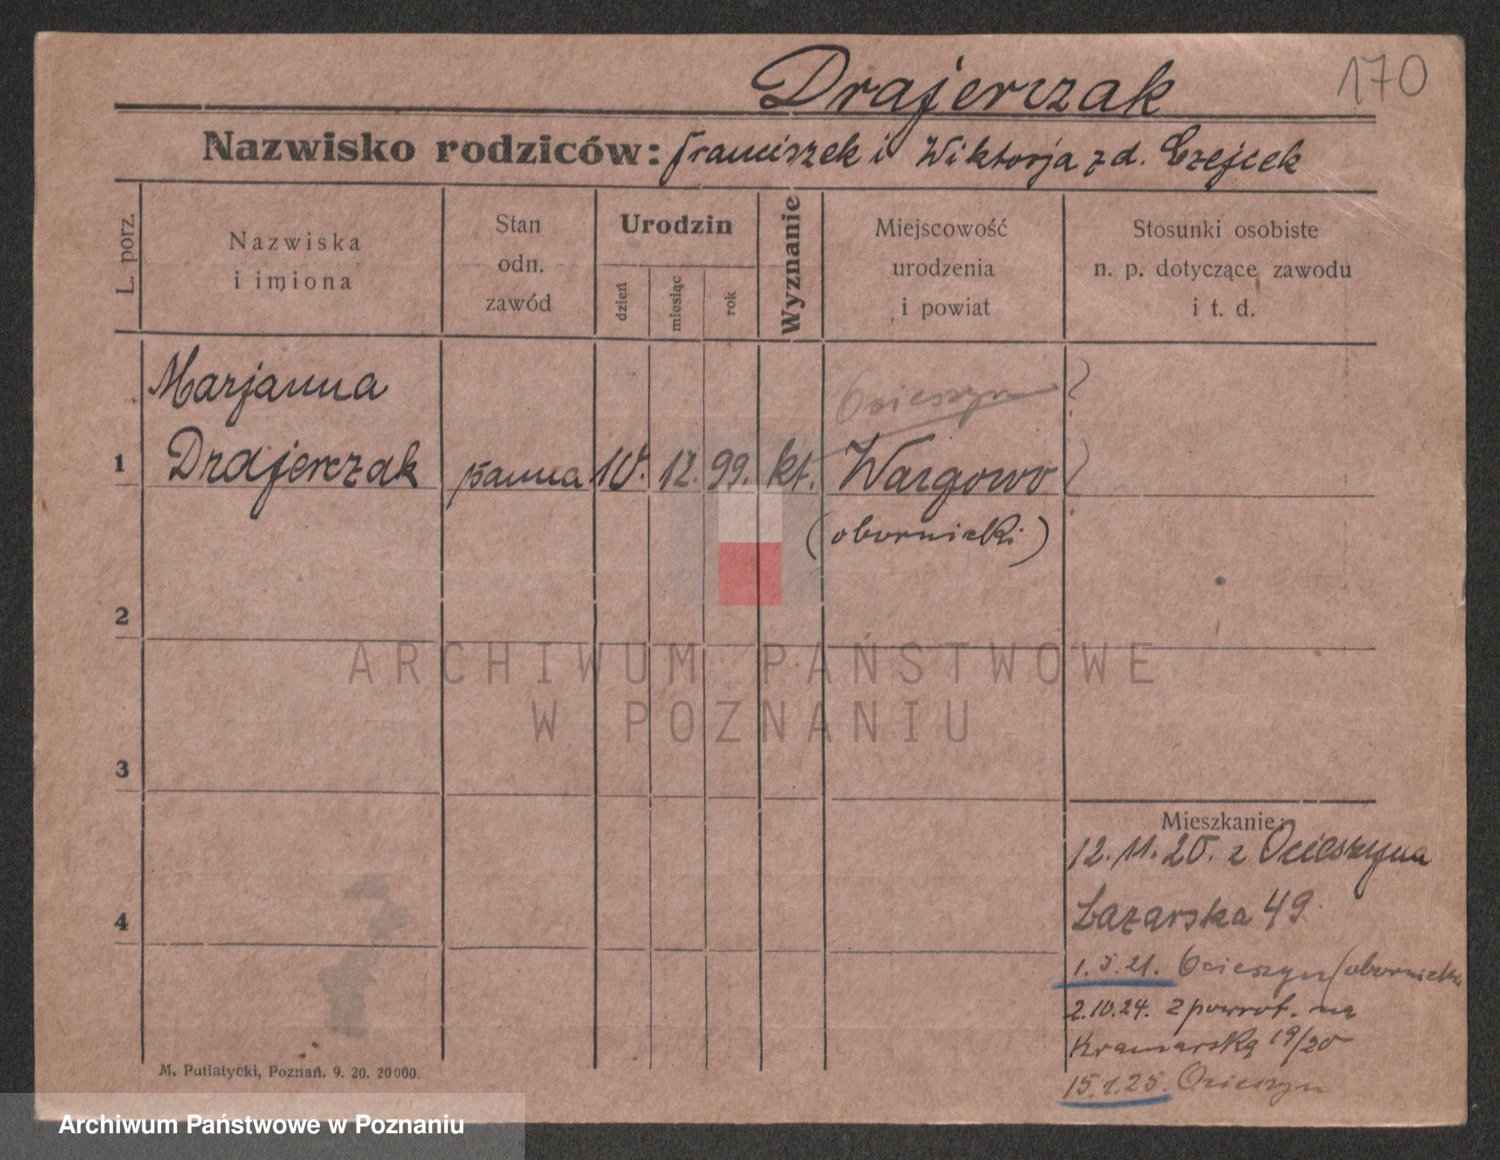 170
Drajerczak
Nazwisko rodziców: Franciszek i Wiktorja z d. Czejcek
L. porz.
Nazwiska
i imiona
Stan
odn.
zawód
Urodzin
dzień
miesiąc
rok
Wyznanie
Miejscowość
urodzenia
i powiat
Stosunki osobiste
n. p. dotyczące zawodu
i t. d.
Marjanna
Ocieszyn ?
1 Drajerczak panna 10. 12. 99. kt. Wargowo ?
(obornicki)
2
ARCHIWUM PAŃSTWOWE
W POZNANIU
3
Mieszkanie:
12.11.20. z Ocieszyna
4
Łazarska 49.
1.5.21. Ocieszyn (obornicki
2.10.24. z powrot. na
Kramarską 19/20
15.1.25. Ocieszyn
M. Putiatycki, Poznań. 9. 20. 20000.
Archiwum Państwowe w Poznaniu